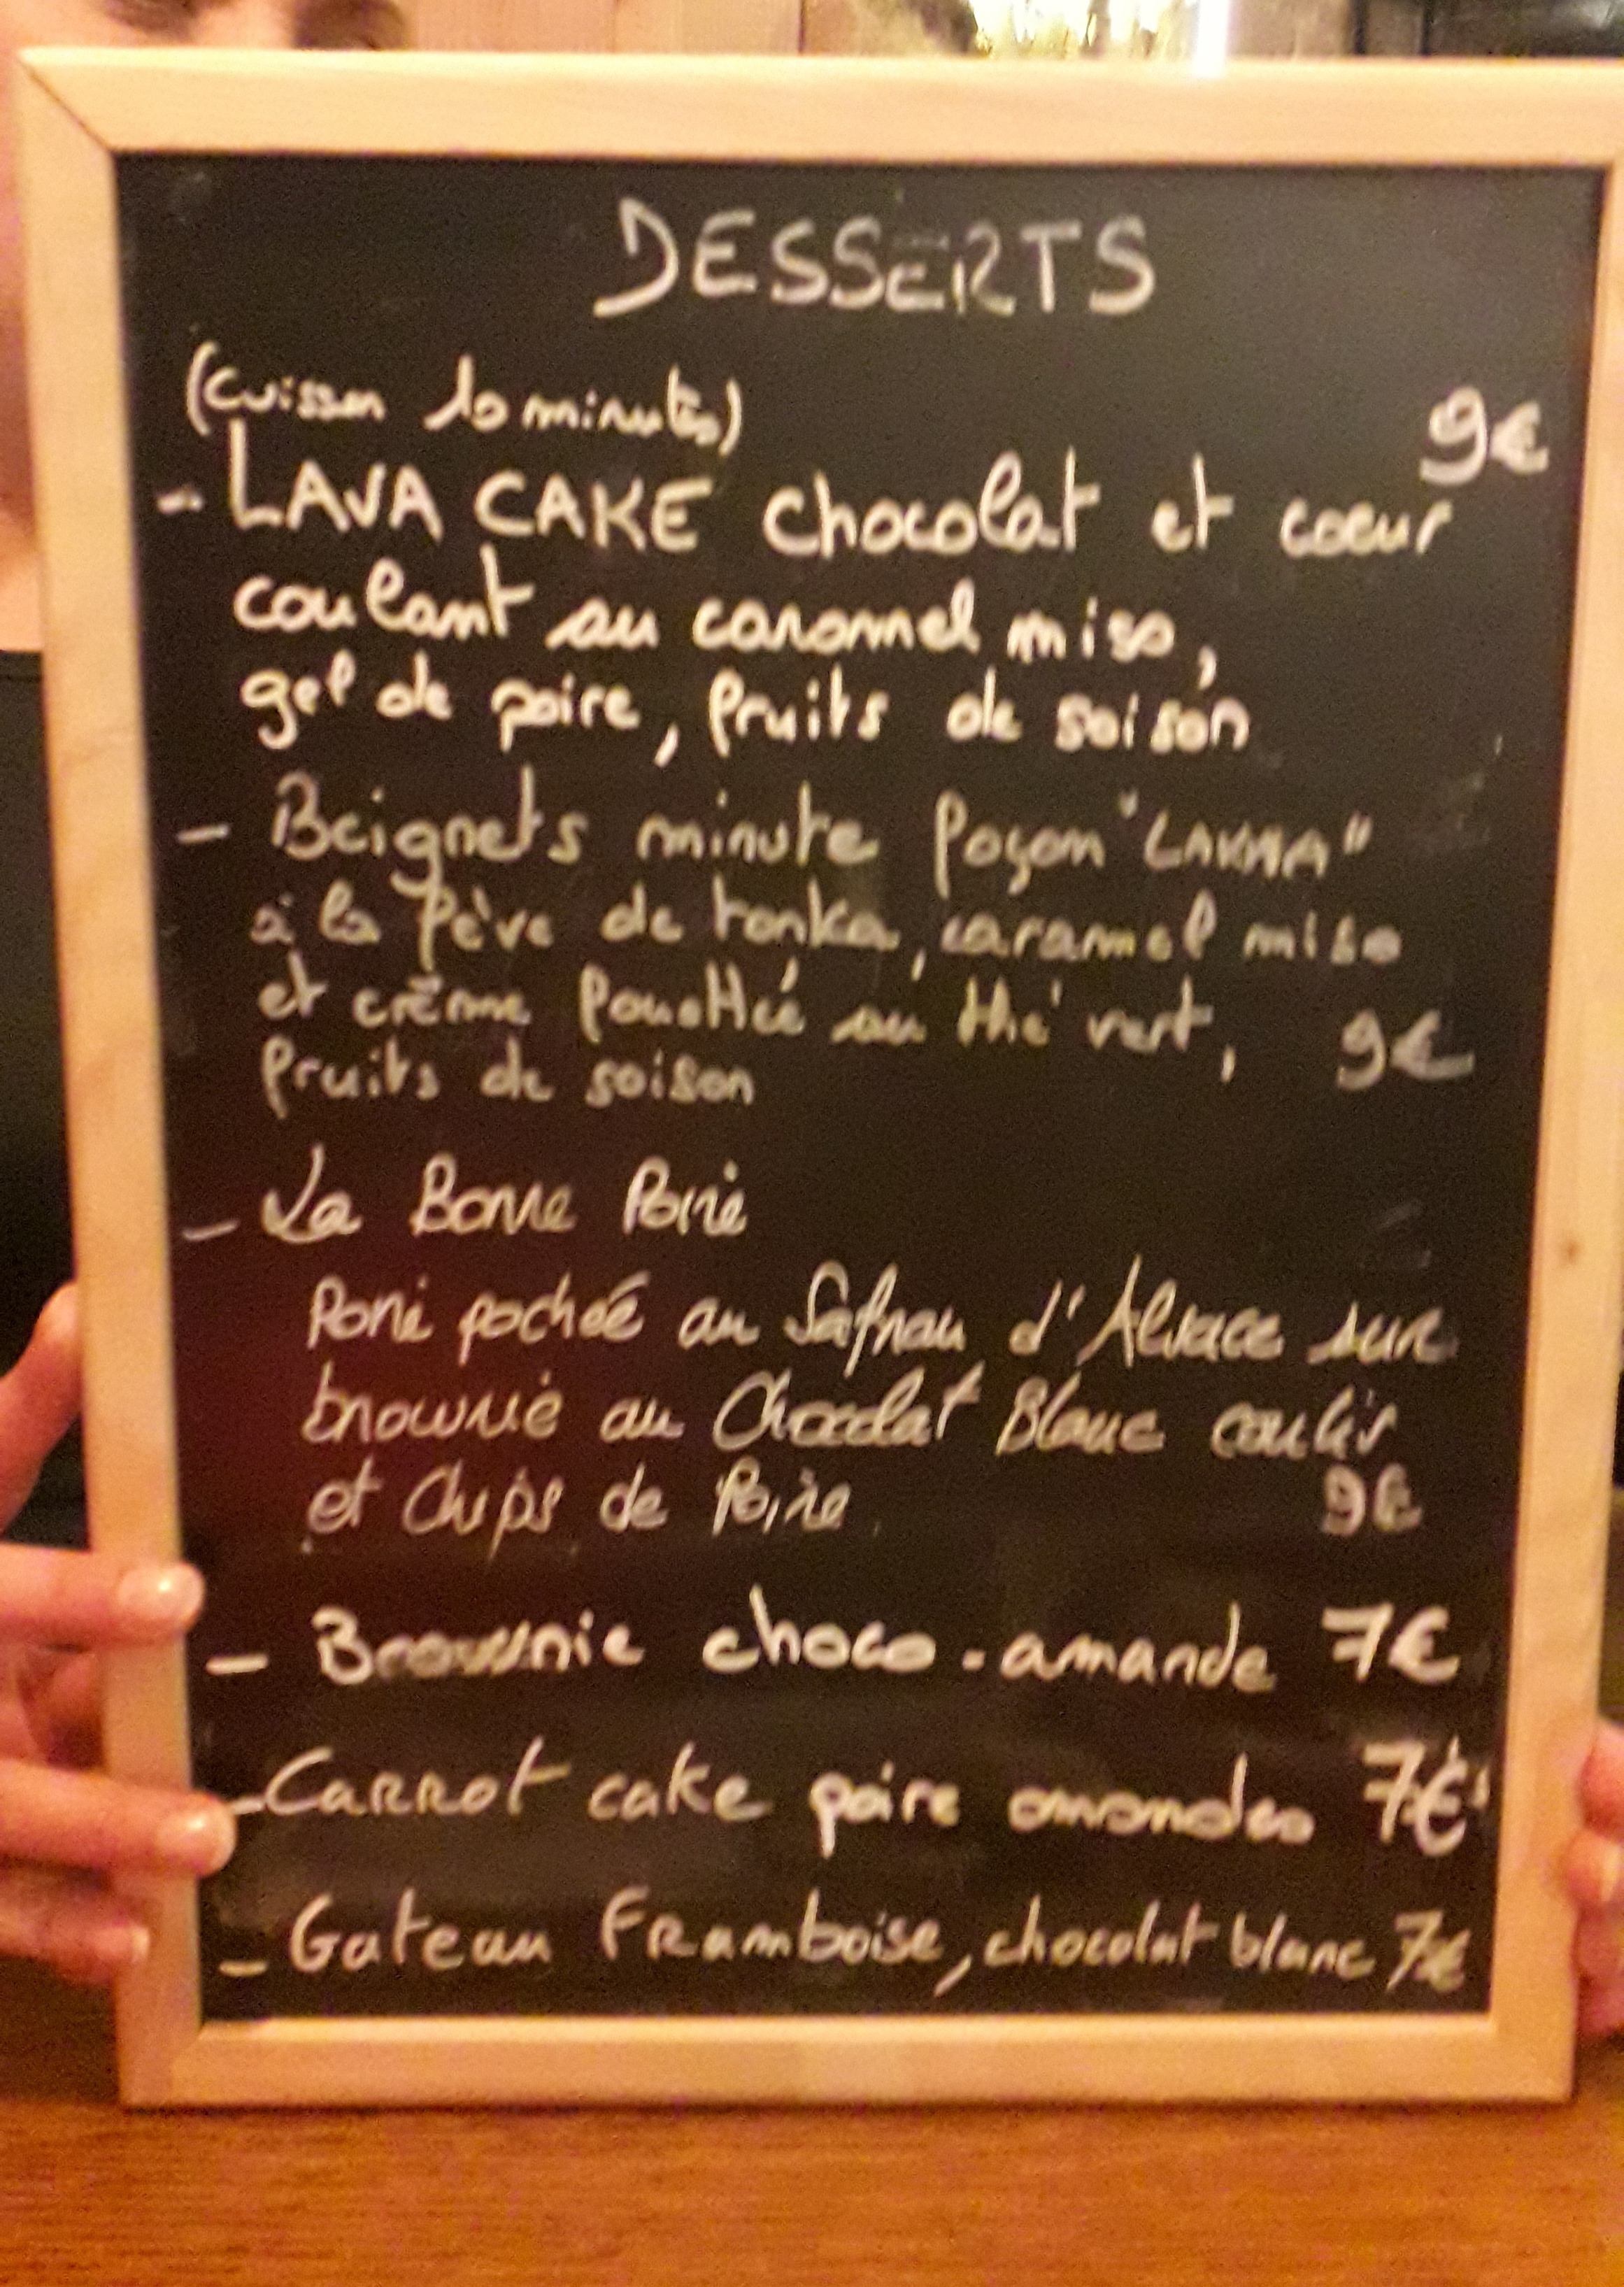 DESSERTS
(cuisson 10 minutes)
9€
- LAVA CAKE chocolat et coeur
coulant au caramel miso,
gel de poire, fruits de saison
- Beignets minute façon "LAKMA"
à la fève de tonka, caramel miso
et crème fouettée au thé vert, 9€
fruits de saison
- La Bonne Poire
Poire pochée au Safran d'Alsace sur
brownie au Chocolat Blanc coulis
et Chips de Poire 9€
- Brownie choco-amande 7€
- Carrot cake poire amandes 7€
- Gateau Framboise, chocolat blanc 7€